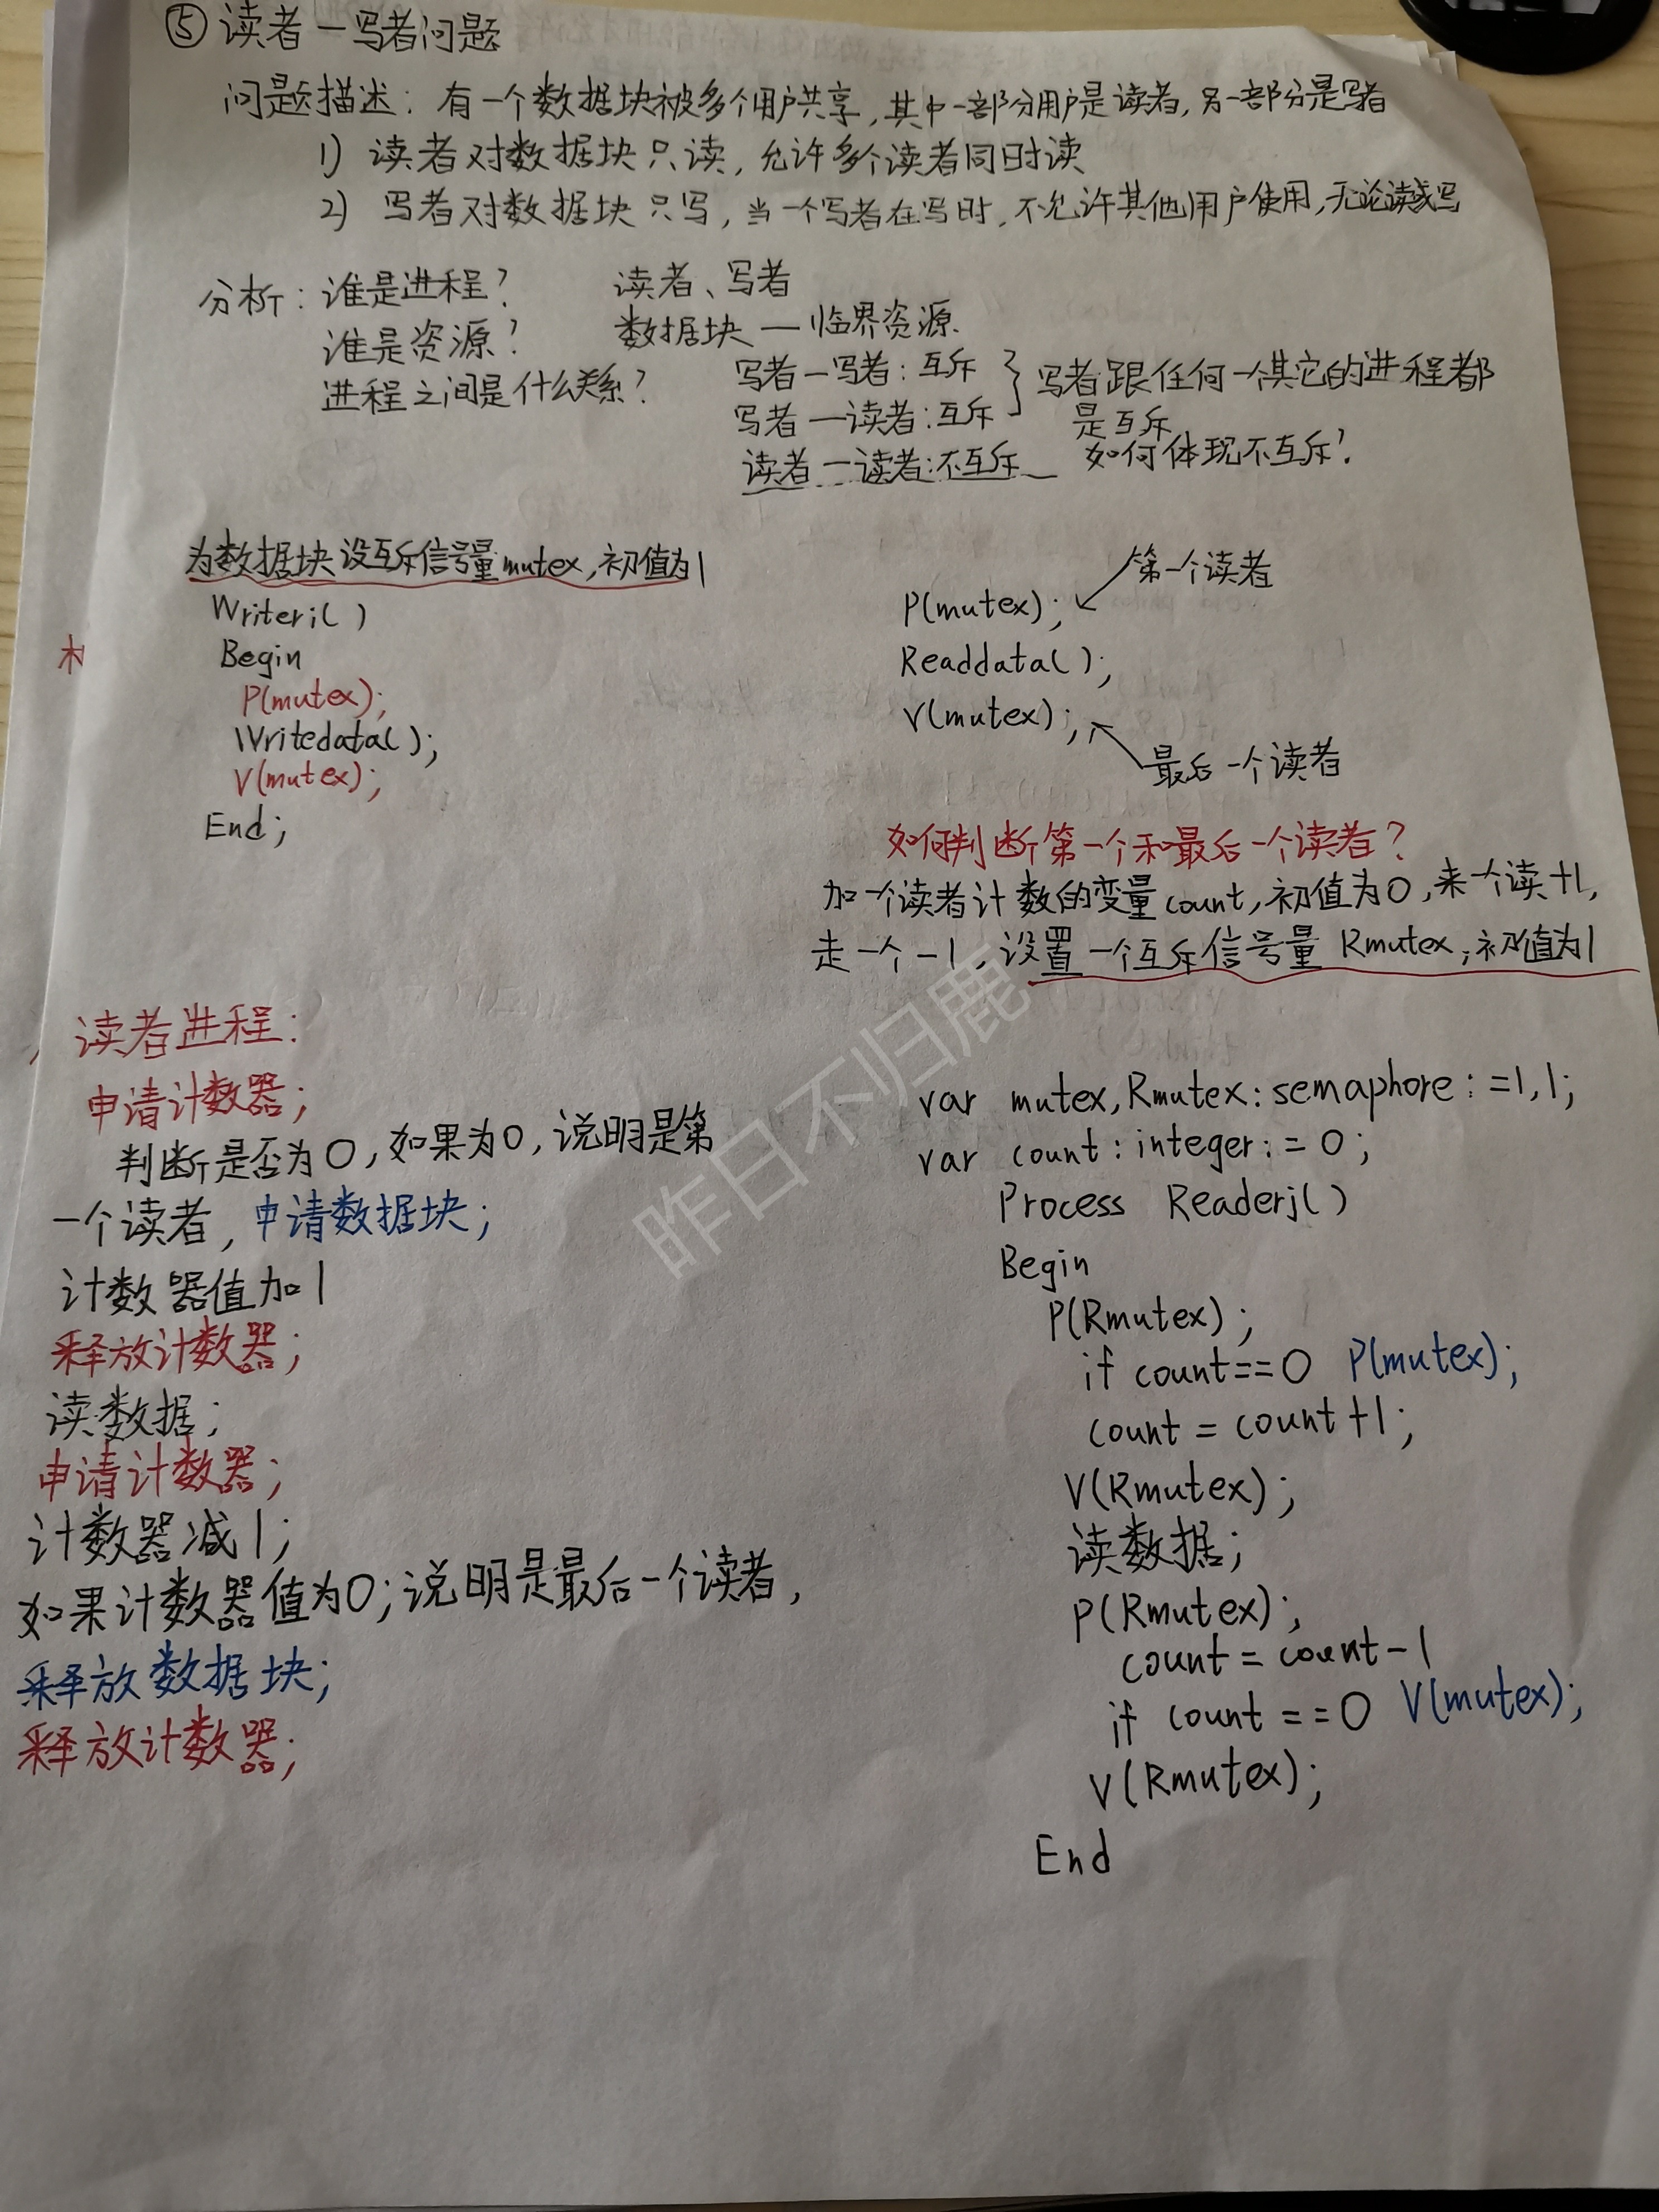 ⑤ 读者一写者问题
问题描述：有一个数据块被多个用户共享，其中一部分用户是读者，另一部分是写者
1) 读者对数据块只读，允许多个读者同时读
2) 写者对数据块只写，当一个写者在写时，不允许其他用户使用，无论读或写
分析：谁是进程？ 读者、写者
谁是资源？ 数据块 — 临界资源.
进程之间是什么关系？ 写者—写者：互斥
写者—读者：互斥
写者跟任何一个其它的进程都
是互斥
读者—读者：不互斥 如何体现不互斥？
为数据块设互斥信号量mutex,初值为1
Writeri( )
Begin
P(mutex);
Writedata( );
V(mutex);
End;
第一个读者
P(mutex);
Readdata( );
V(mutex);
最后一个读者
如何判断第一个和最后一个读者？
加一个读者计数的变量count,初值为0,来一个读+1,
走一个-1,设置一个互斥信号量Rmutex,初值为1
读者进程：
申请计数器；
判断是否为0,如果为0,说明是第
一个读者,申请数据块；
计数器值加1
释放计数器；
读数据；
申请计数器；
计数器减1；
如果计数器值为0；说明是最后一个读者，
释放数据块；
释放计数器；
var mutex,Rmutex:semaphore:=1,1;
var count:integer:=0;
Process Readerj( )
Begin
P(Rmutex);
if count==0 P(mutex);
count = count+1;
V(Rmutex);
读数据；
P(Rmutex);
count = count-1
if count==0 V(mutex);
V(Rmutex);
End
昨日不归鹿